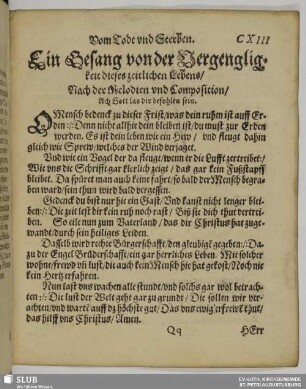 Vom Tode vnd Sterben.
CXIII
Ein Gesang von der Vergenglig-
keit dieses zeitlichen Lebens/
Nach der Melodien vnd Composition/
Ach Gott las dir befohlen sein.
O Mensch bedenck zu dieser Frist/ was dein ruhm ist auff Er-
den :/: Denn nicht allhie dein bleiben ist/ du must zur Erden
werden. Es ist dein leben wie ein Hew/ vnd fleugt dahin
gleich wie Sprew/ welches der Wind verjaget.
Vnd wie ein Vogel der da fleuget/ wenn er die Lufft zertreibet/
Wie vns die Schrifft gar klerlich zeigt/ das gar kein Fußstapff
bleibet. Da fehret man auch keine fahrt/ so bald der Mensch begra-
ben ward/ sein thun wird bald vergessen.
Gedenck du bist nur hie ein Gast/ Vnd kanst nicht lenger blei-
ben :/: Die zeit lest dir kein ruh noch rast/ Biß sie dich thut vertrei-
ben. So eile nun zum Vaterland/ das dir Christus hat zuge-
wandt/ durch sein heiliges Leiden.
Daselb wird rechte Bürgerschafft/ den gleubigt gegeben :/: Da-
zu der Engel Brüderschafft/ ein gar herrliches Leben. Mit solcher
wohne/ frewd vñ lust/ die auch kein Mensch hie hat gekost/ Noch nie
kein Hertz erfahren.
Nun last vns wachen alle stund/ vnd solchs gar wol betrach-
ten :/: Die lust der Welt geht gar zu grund/ Die sollen wir ver-
achten/ vnd wartē auff dz höchst gut/ Das vns ewig erfrewē thut/
das hilff vns Christus/ Amen.
Qq
HErr
SLUB
Wir führen Wissen.
EV.-LUTH. KIRCHGEMEINDE
ST. PETRI AUGUSTUSBURG